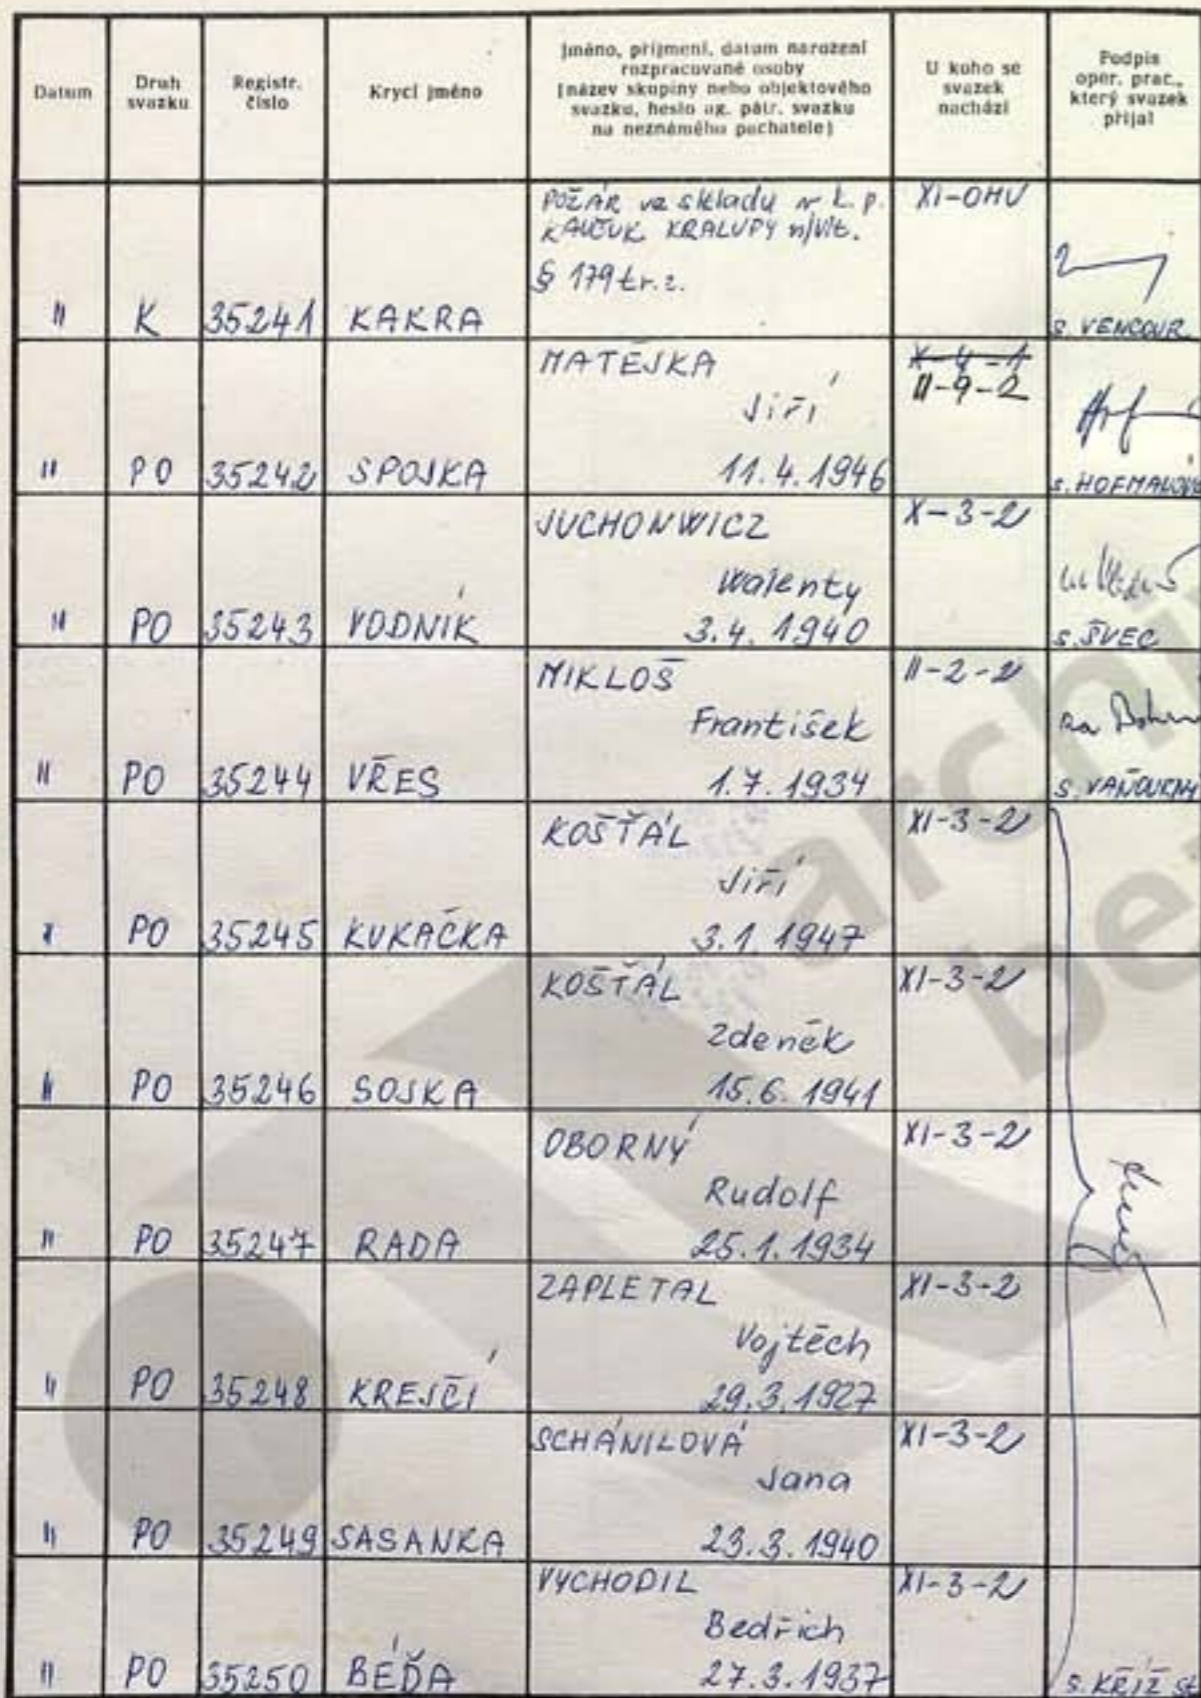 Datum
Druh
svazku
Registr.
číslo
Krycí jméno
Jméno, příjmení, datum narození
rozpracované osoby
(název skupiny nebo objektového
svazku, heslo ag. pátr. svazku
na neznámého pachatele)
U koho se
svazek
nachází
Podpis
oper. prac.,
který svazek
přijal
" K 35241 KAKRA
POŽÁR ve skladu v k. p.
KAUČUK KRALUPY n/Vlt.
§ 179 tr. z.
XI-OHV
s. VENCOUR
" PO 35242 SPOJKA
MATĚJKA
Jiří
11.4.1946
X-4-1
II-9-2
" PO 35243 VODNÍK
JUCHONWICZ
Walenty
3.4.1940
X-3-2
s. ŠVEC
" PO 35244 VŘES
MIKLOŠ
František
1.7.1934
II-2-2
" PO 35245 KUKAČKA
KOŠŤÁL
Jiří
3.1.1947
XI-3-2
" PO 35246 SOJKA
KOŠŤÁL
Zdeněk
15.6.1941
XI-3-2
" PO 35247 RADA
OBORNÝ
Rudolf
25.1.1934
XI-3-2
" PO 35248 KREJČÍ
ZAPLETAL
Vojtěch
29.3.1927
XI-3-2
" PO 35249 SASANKA
SCHÁNILOVÁ
Jana
23.3.1940
XI-3-2
" PO 35250 BÉĎA
VYCHODIL
Bedřich
27.3.1937
XI-3-2
s. KŘÍŽ
archi
be